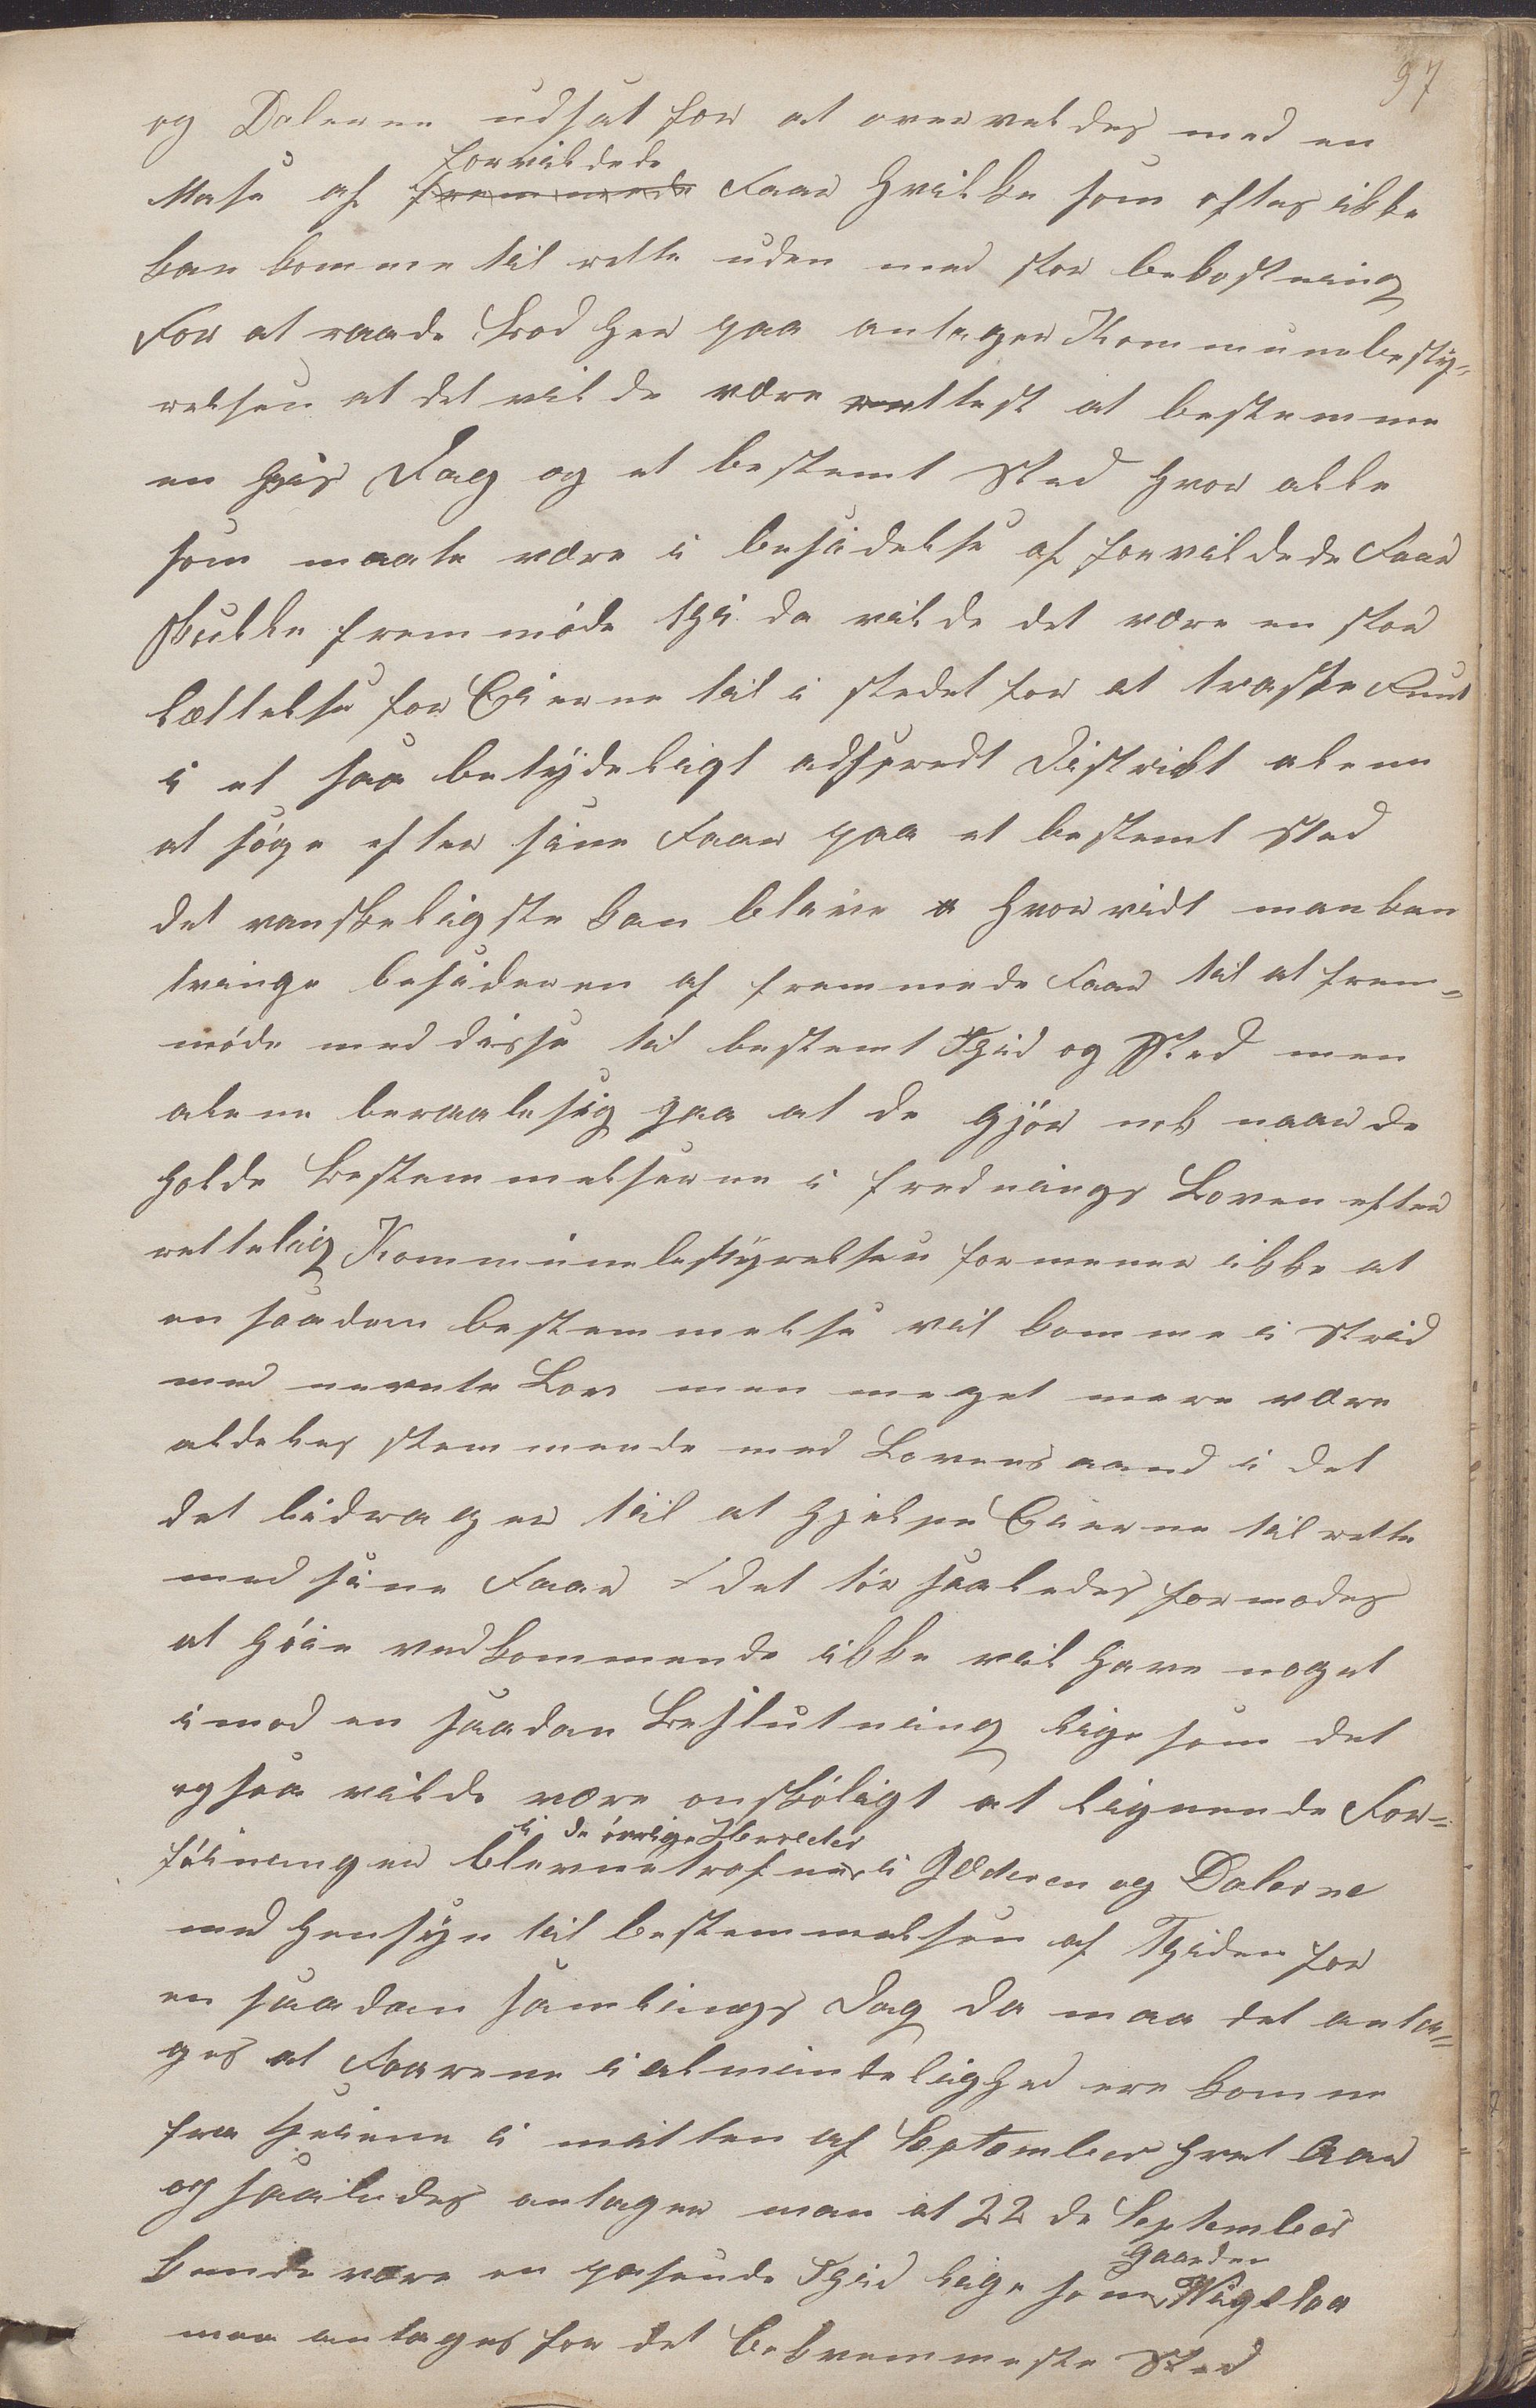 97
og Dalerne udsat for at overveldes med en
Mase af forvildede fremmede Faar hvilke som oftes ikke
kan komme til rette uden med stor bekostning
For at raade Bod her paa antager Kommunebesty-
relsen at det vilde være rettest at bestemme
en vis Dag og et bestemt sted hvor alle
som maate være i besidelse af forvildede Faar
skulle fremmøde thi da vilde det være en stor
lættelse for Eierne til i stedet for at traske rundt
i et saa betydeligt adspredt District alene
at søge efter sine Faar paa et bestemt sted
det vanskeligste kan bleive hvorvidt man kan
tvinge besideren af fremmede Faar til at frem-
møde med disse til bestemt Tyid og Sted men
alene beraabe sig paa at de gjør nok naar de
holde Bestemmelserne i frednings Loven efter
rettelig Kommunebestyrelsen formener ikke at
en saadan bestemmelse vil komme i strid
med nevnte Lov men meget mere være
aldeles stemmende med Lovens aand i det
det bidrager til at hjelpe Eierne til rette
med sine Faar det tør saaledes formodes
at høie vedkommende ikke vil have noget
imod en saadan Beslutning lige som det
ogsaa vilde være onskeligt at lignende For-
i de øvrige Herreder
føininger blevne trofne i Jæderen og Dalerne
med Hensyn til bestemmelsen af Tyiden for
en saadan samlings Dag da maa det anta-
ges at Faarene i almindelighed ere komne
fra Heiene i mitten af September hvert Aar
og saaledes antager man at 22 de September
kunde være en pasende Tyid lige som gaarden Vigstaa
maa antages for det bekvemmeste Sted